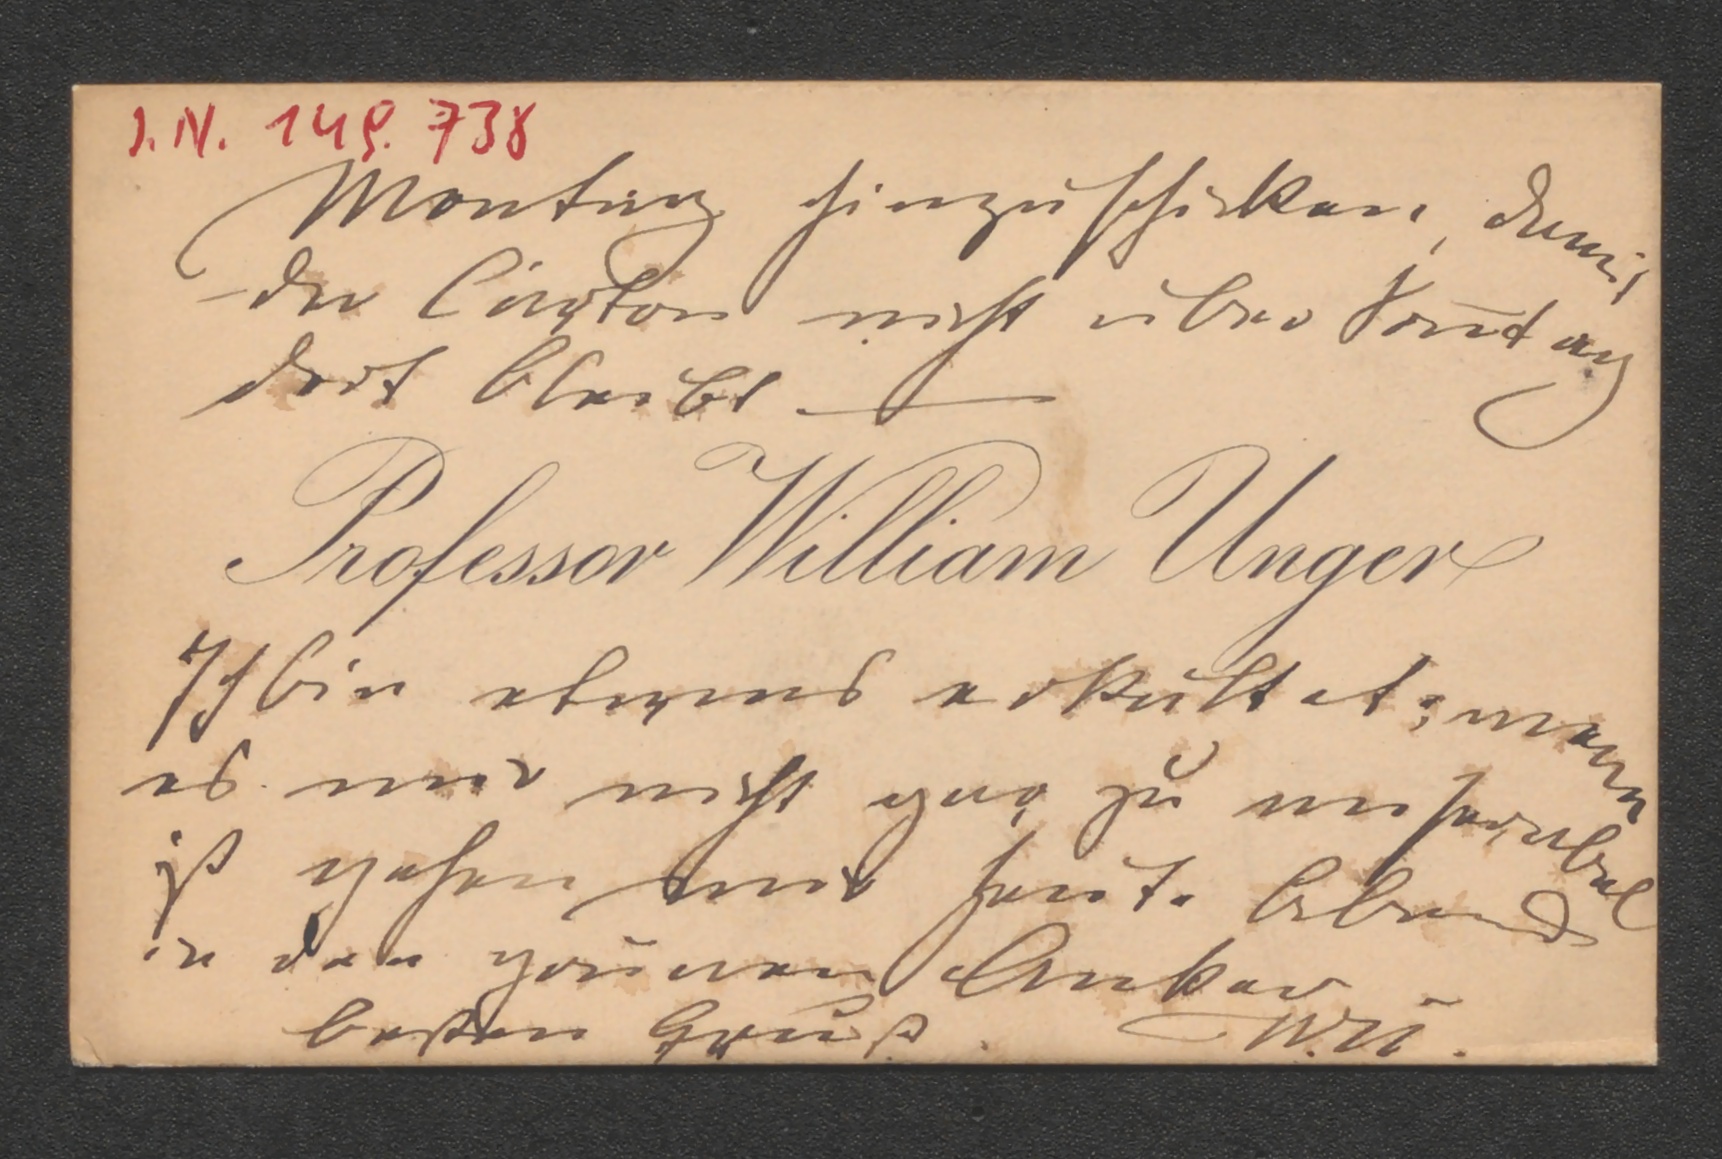 J.N. 149.738
Montag hinzuschicken, damit
der Carton nicht über Sonntag
dort bleibt —
Professor William Unger
Ich bin etwas erkältet; wenn
es mir nicht gar zu miserabel
ist gehen wir heute Abend
in den grünen Anker
besten Gruß. W.U.